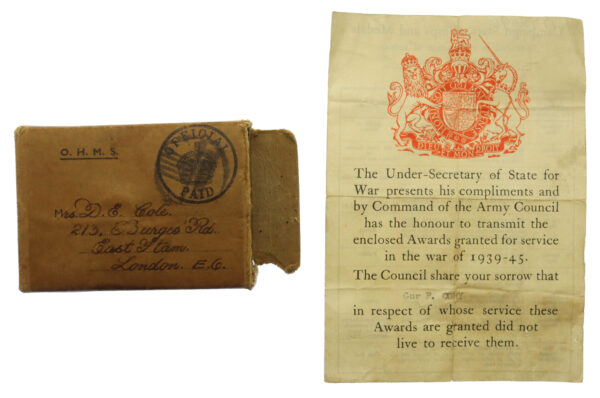 O. H. M. S.
OFFICIAL
PAID
Mrs. D. E. Cole.
213, E. Burges Rd.
East Ham.
London. E.6.
DIEU ET MON DROIT
The Under-Secretary of State for
War presents his compliments and
by Command of the Army Council
has the honour to transmit the
enclosed Awards granted for service
in the war of 1939-45.
The Council share your sorrow that
Gnr P.
in respect of whose service these
Awards are granted did not
live to receive them.